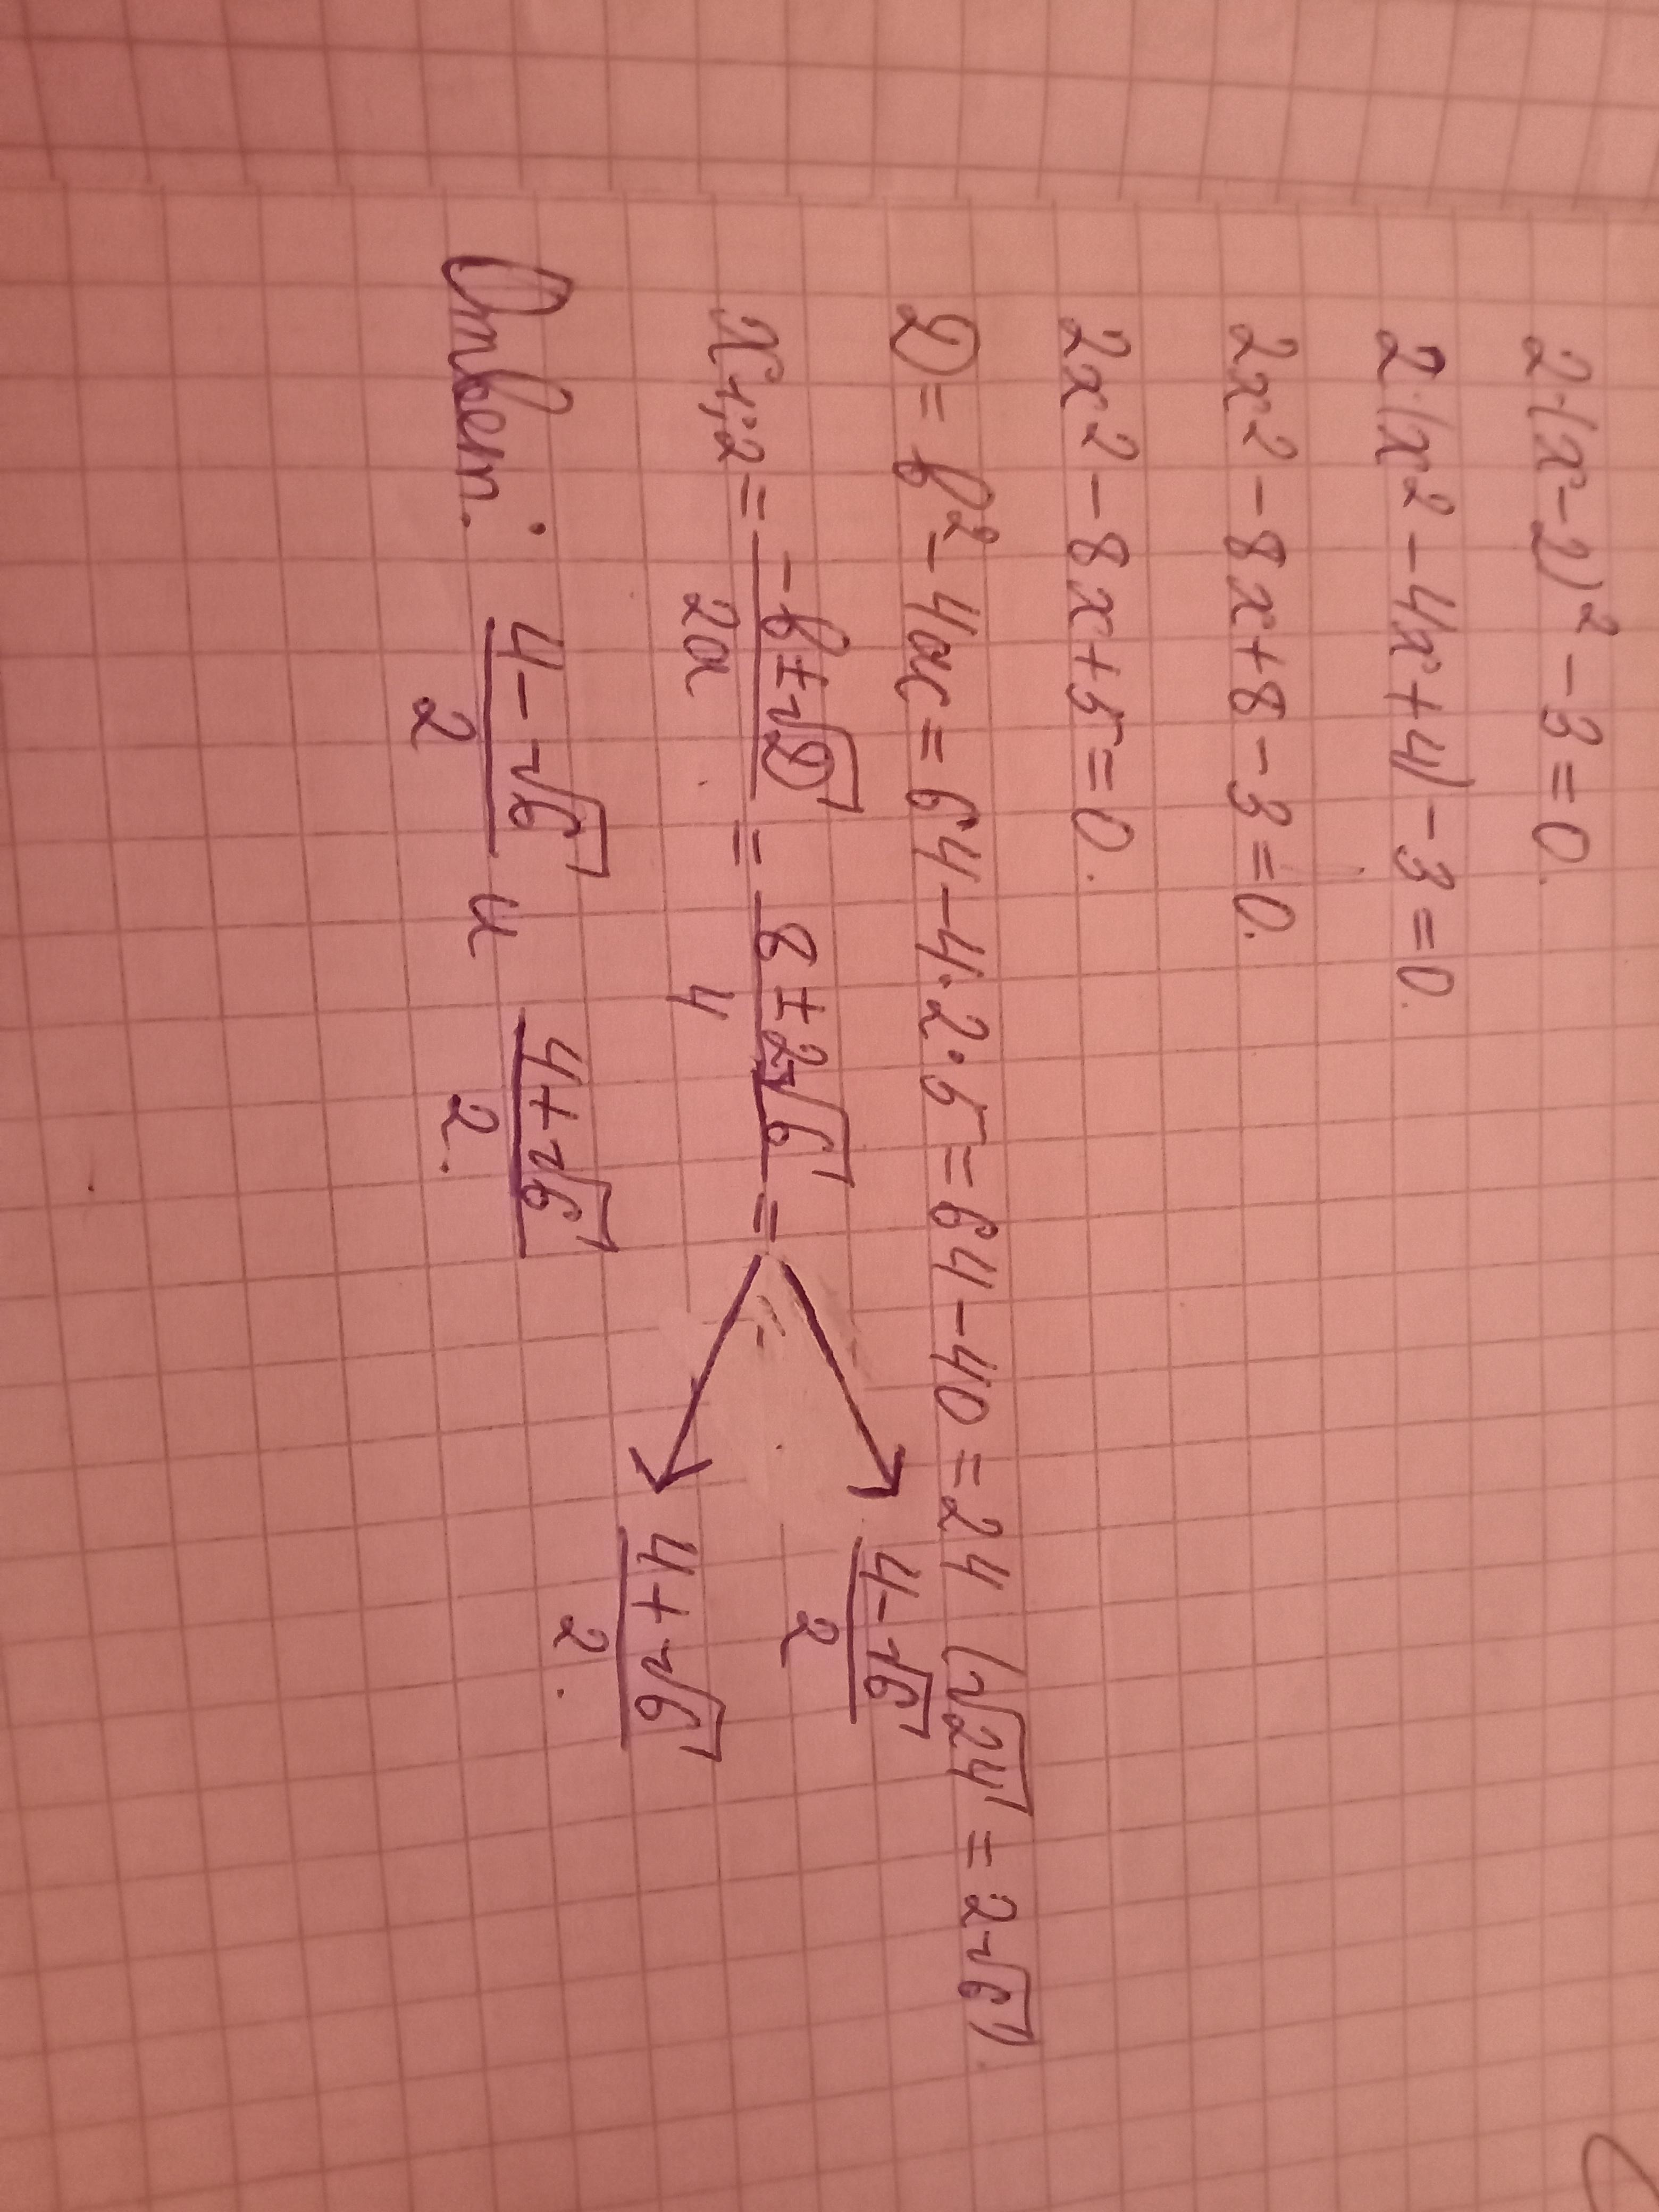 2·(x-2)² - 3 = 0.
2·(x² - 4x + 4) - 3 = 0.
2x² - 8x + 8 - 3 = 0.
2x² - 8x + 5 = 0.
D = b² - 4ac = 64 - 4·2·5 = 64 - 40 = 24 (√24 = 2√6).
x₁;₂ = (-b ± √D)/2a = (8 ± 2√6)/4 =
(4 - √6)/2
(4 + √6)/2.
Ответ: (4 - √6)/2 и (4 + √6)/2.